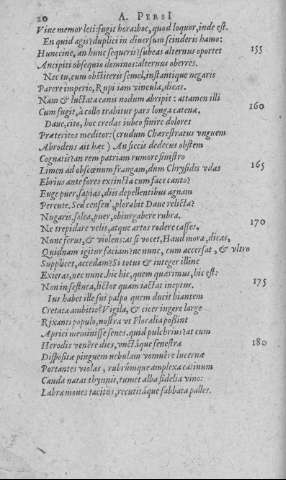 20 A. PERSI
Viue memor leti: fugit hora: hoc, quod loquor, inde est.
En quid agis? duplici in diuersum scinderis hamo:
Hunccine, an hunc sequeris? subeas alternus oportet 155
Ancipiti obsequio dominos: alternus oberres.
Nec tu, cum obstiteris semel, instantique negaris
Parere imperio, Rupi iam vincula, dicas.
Nam & luctata canis nodum abripit: attamen illi
Cum fugit, à collo trahitur pars longa catenæ. 160
Daue, cito, hoc credas iubeo finire dolores
Præteritos meditor: (crudum Chærestratus vnguem
Abrodens ait hæc) An siccis dedecus obstem
Cognatis? an rem patriam rumore sinistro
Limen ad obscœnum frangam, dum Chrysidis vdas 165
Ebrius ante fores extincta cum face canto?
Euge puer, sapias, diis depellentibus agnam
Percute. Sen' censen', plorabit Daue relicta?
Nugaris. solea, puer, obiurgabere rubra.
Ne trepidare velis, atque artos rodere casses. 170
Nunc ferus, & violens: at si vocet, Haud mora, dicas,
Quidnam igitur faciam? nec nunc, cum accersat, & vltro
Supplicet, accedam? Si totus & integer illinc
Exieras, nec nunc. hic hic, quem quærimus, hic est:
Non in festuca, lictor quam iactat ineptus. 175
Ius habet ille sui palpo quem ducit hiantem
Cretata ambitio? Vigila, & cicer ingere large
Rixanti populo, nostra vt Floralia possint
Aprici meminisse senes. quid pulchrius? at cum
Herodis venere dies, vnctáque fenestra 180
Dispositæ pinguem nebulam vomuere lucernæ
Portantes violas, rubrúmque amplexa catinum
Cauda natat thynni, tumet alba fidelia vino:
Labra moues tacitus, recutitáque sabbata palles.